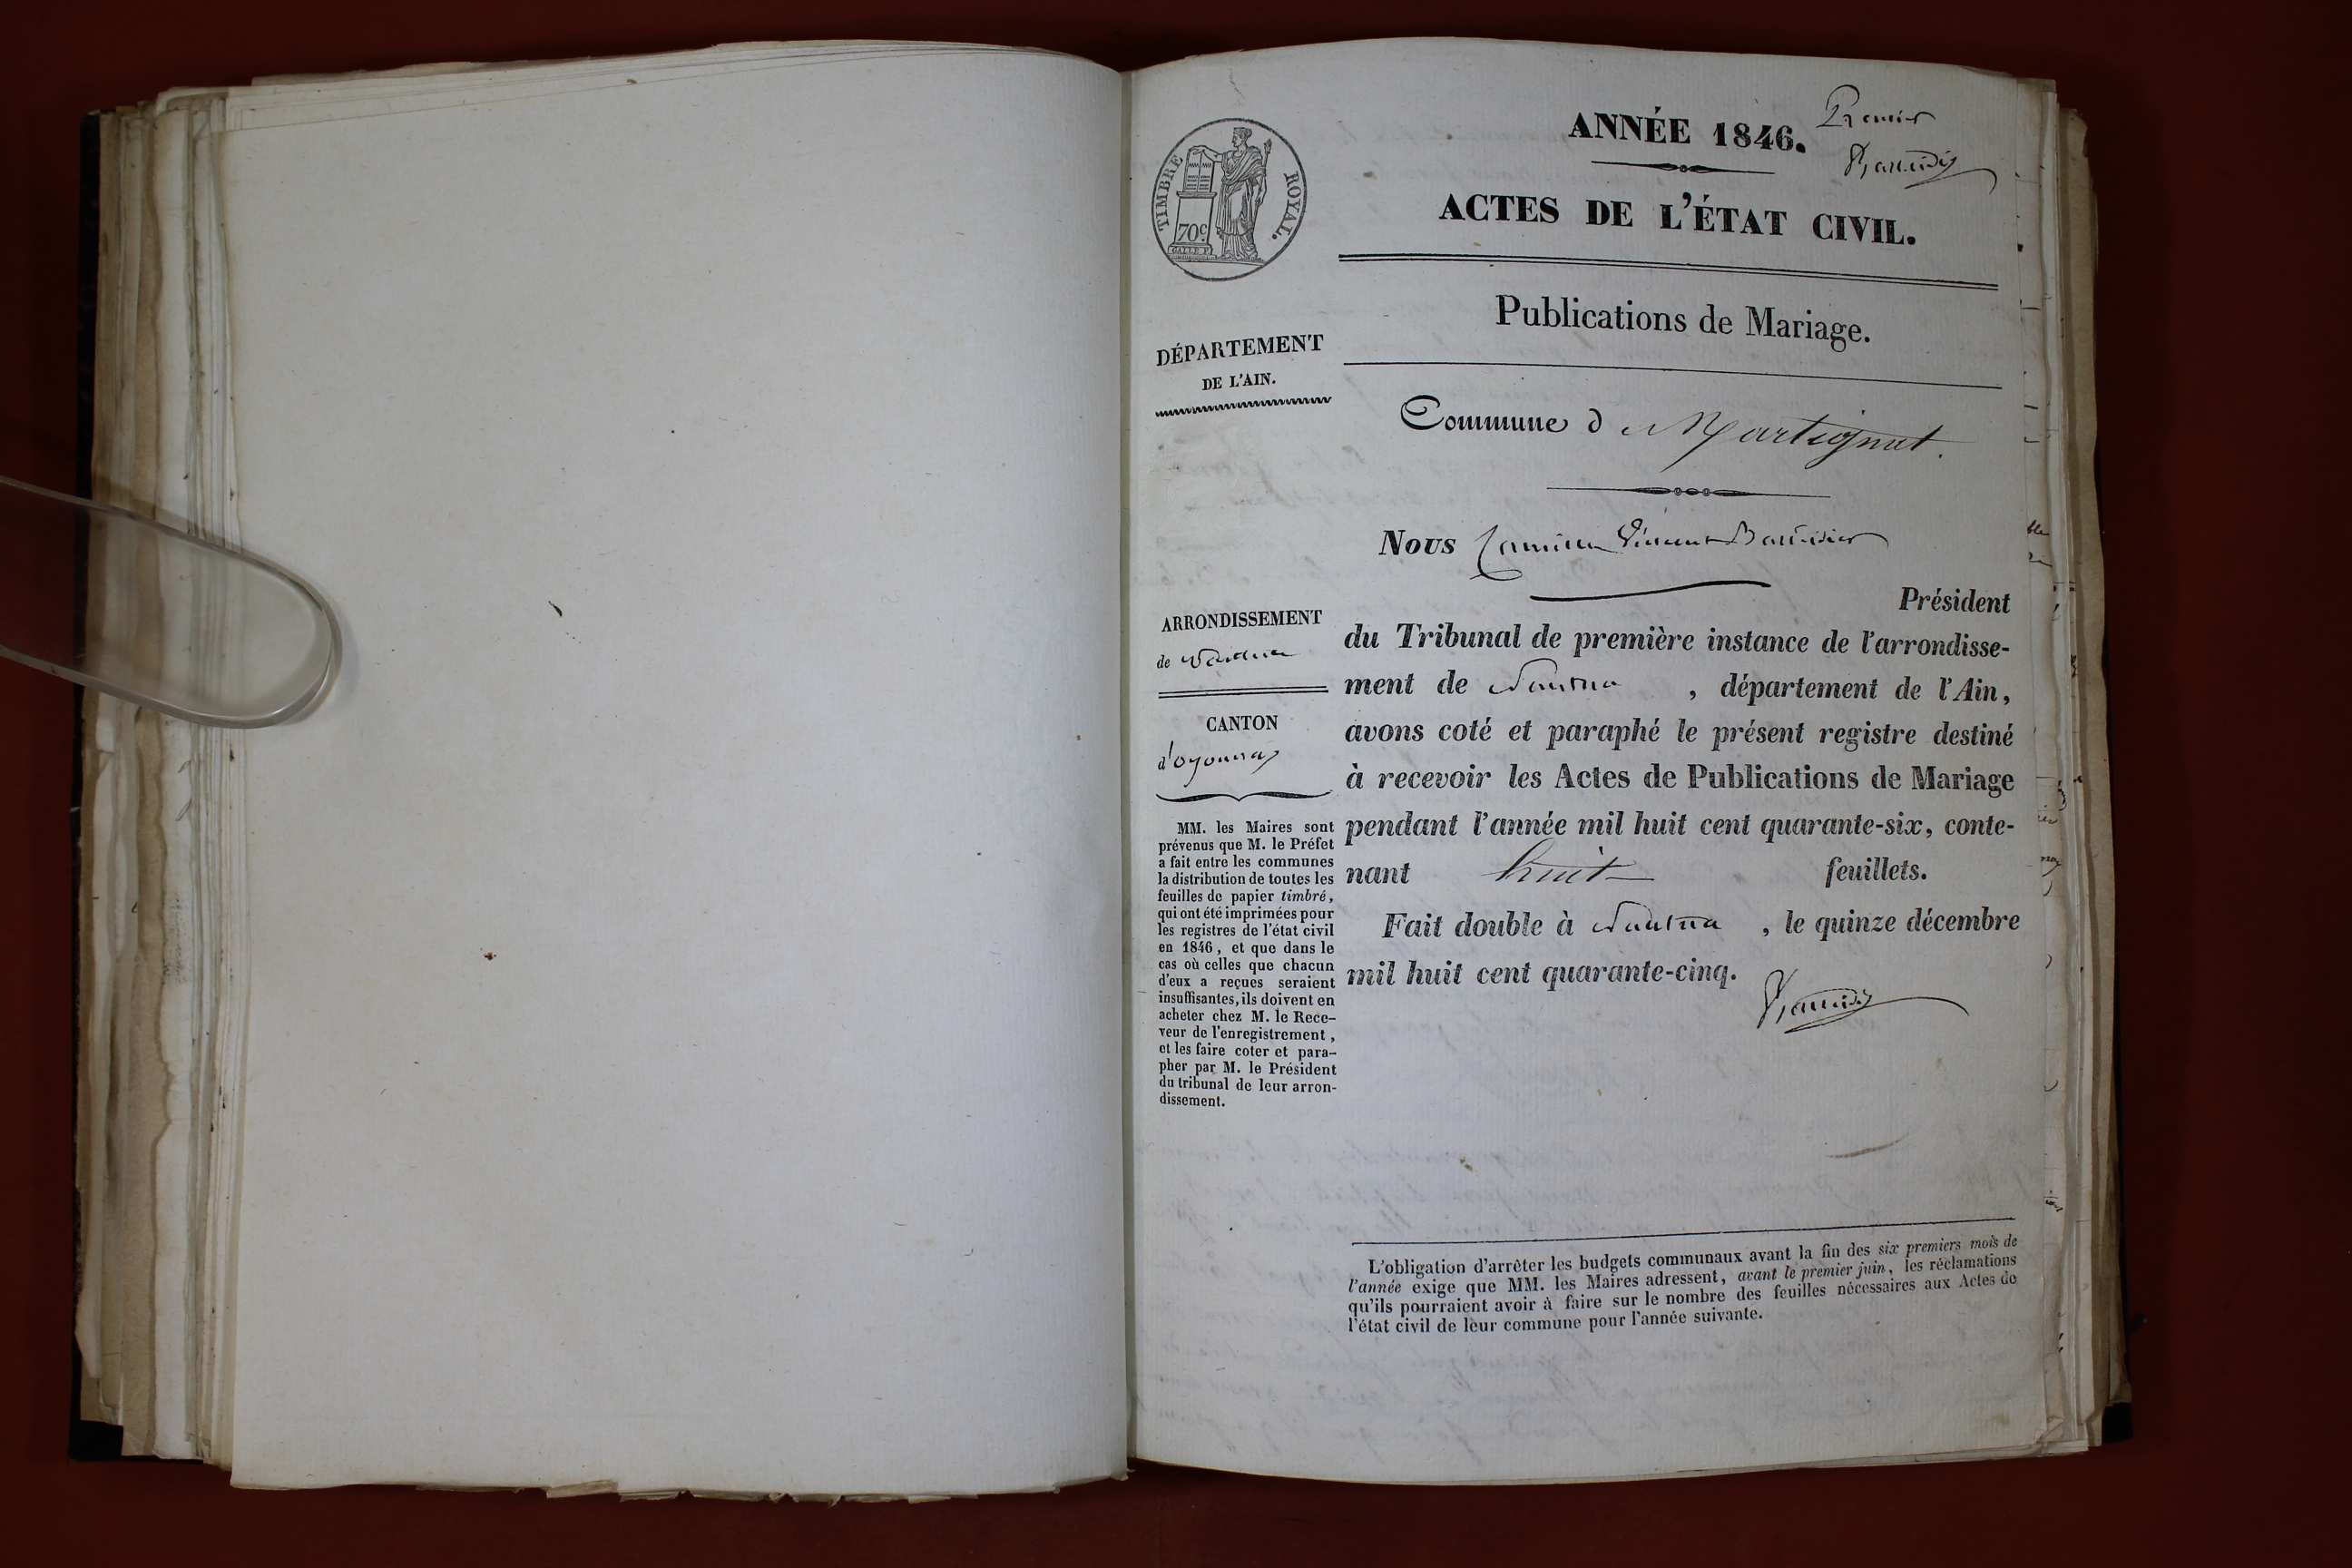 ANNÉE 1846.
Premier
ACTES DE L'ÉTAT CIVIL.
TIMBRE ROYAL.
70c
Publications de Mariage.
DÉPARTEMENT
DE L'AIN.
Commune d Martignat.
Nous
Président
du Tribunal de première instance de l'arrondisse-
ment de Nantua, département de l'Ain,
avons coté et paraphé le présent registre destiné
à recevoir les Actes de Publications de Mariage
pendant l'année mil huit cent quarante-six, conte-
nant huit feuillets.
Fait double à Nantua, le quinze décembre
mil huit cent quarante-cinq.
ARRONDISSEMENT
de Nantua
CANTON
d'oyonnax
MM. les Maires sont
prévenus que M. le Préfet
a fait entre les communes
la distribution de toutes les
feuilles de papier timbré,
qui ont été imprimées pour
les registres de l'état civil
en 1846, et que dans le
cas où celles que chacun
d'eux a reçues seraient
insuffisantes, ils doivent en
acheter chez M. le Rece-
veur de l'enregistrement,
et les faire coter et para-
pher par M. le Président
du tribunal de leur arron-
dissement.
L'obligation d'arrêter les budgets communaux avant la fin des six premiers mois de
l'année exige que MM. les Maires adressent, avant le premier juin, les réclamations
qu'ils pourraient avoir à faire sur le nombre des feuilles nécessaires aux Actes de
l'état civil de leur commune pour l'année suivante.